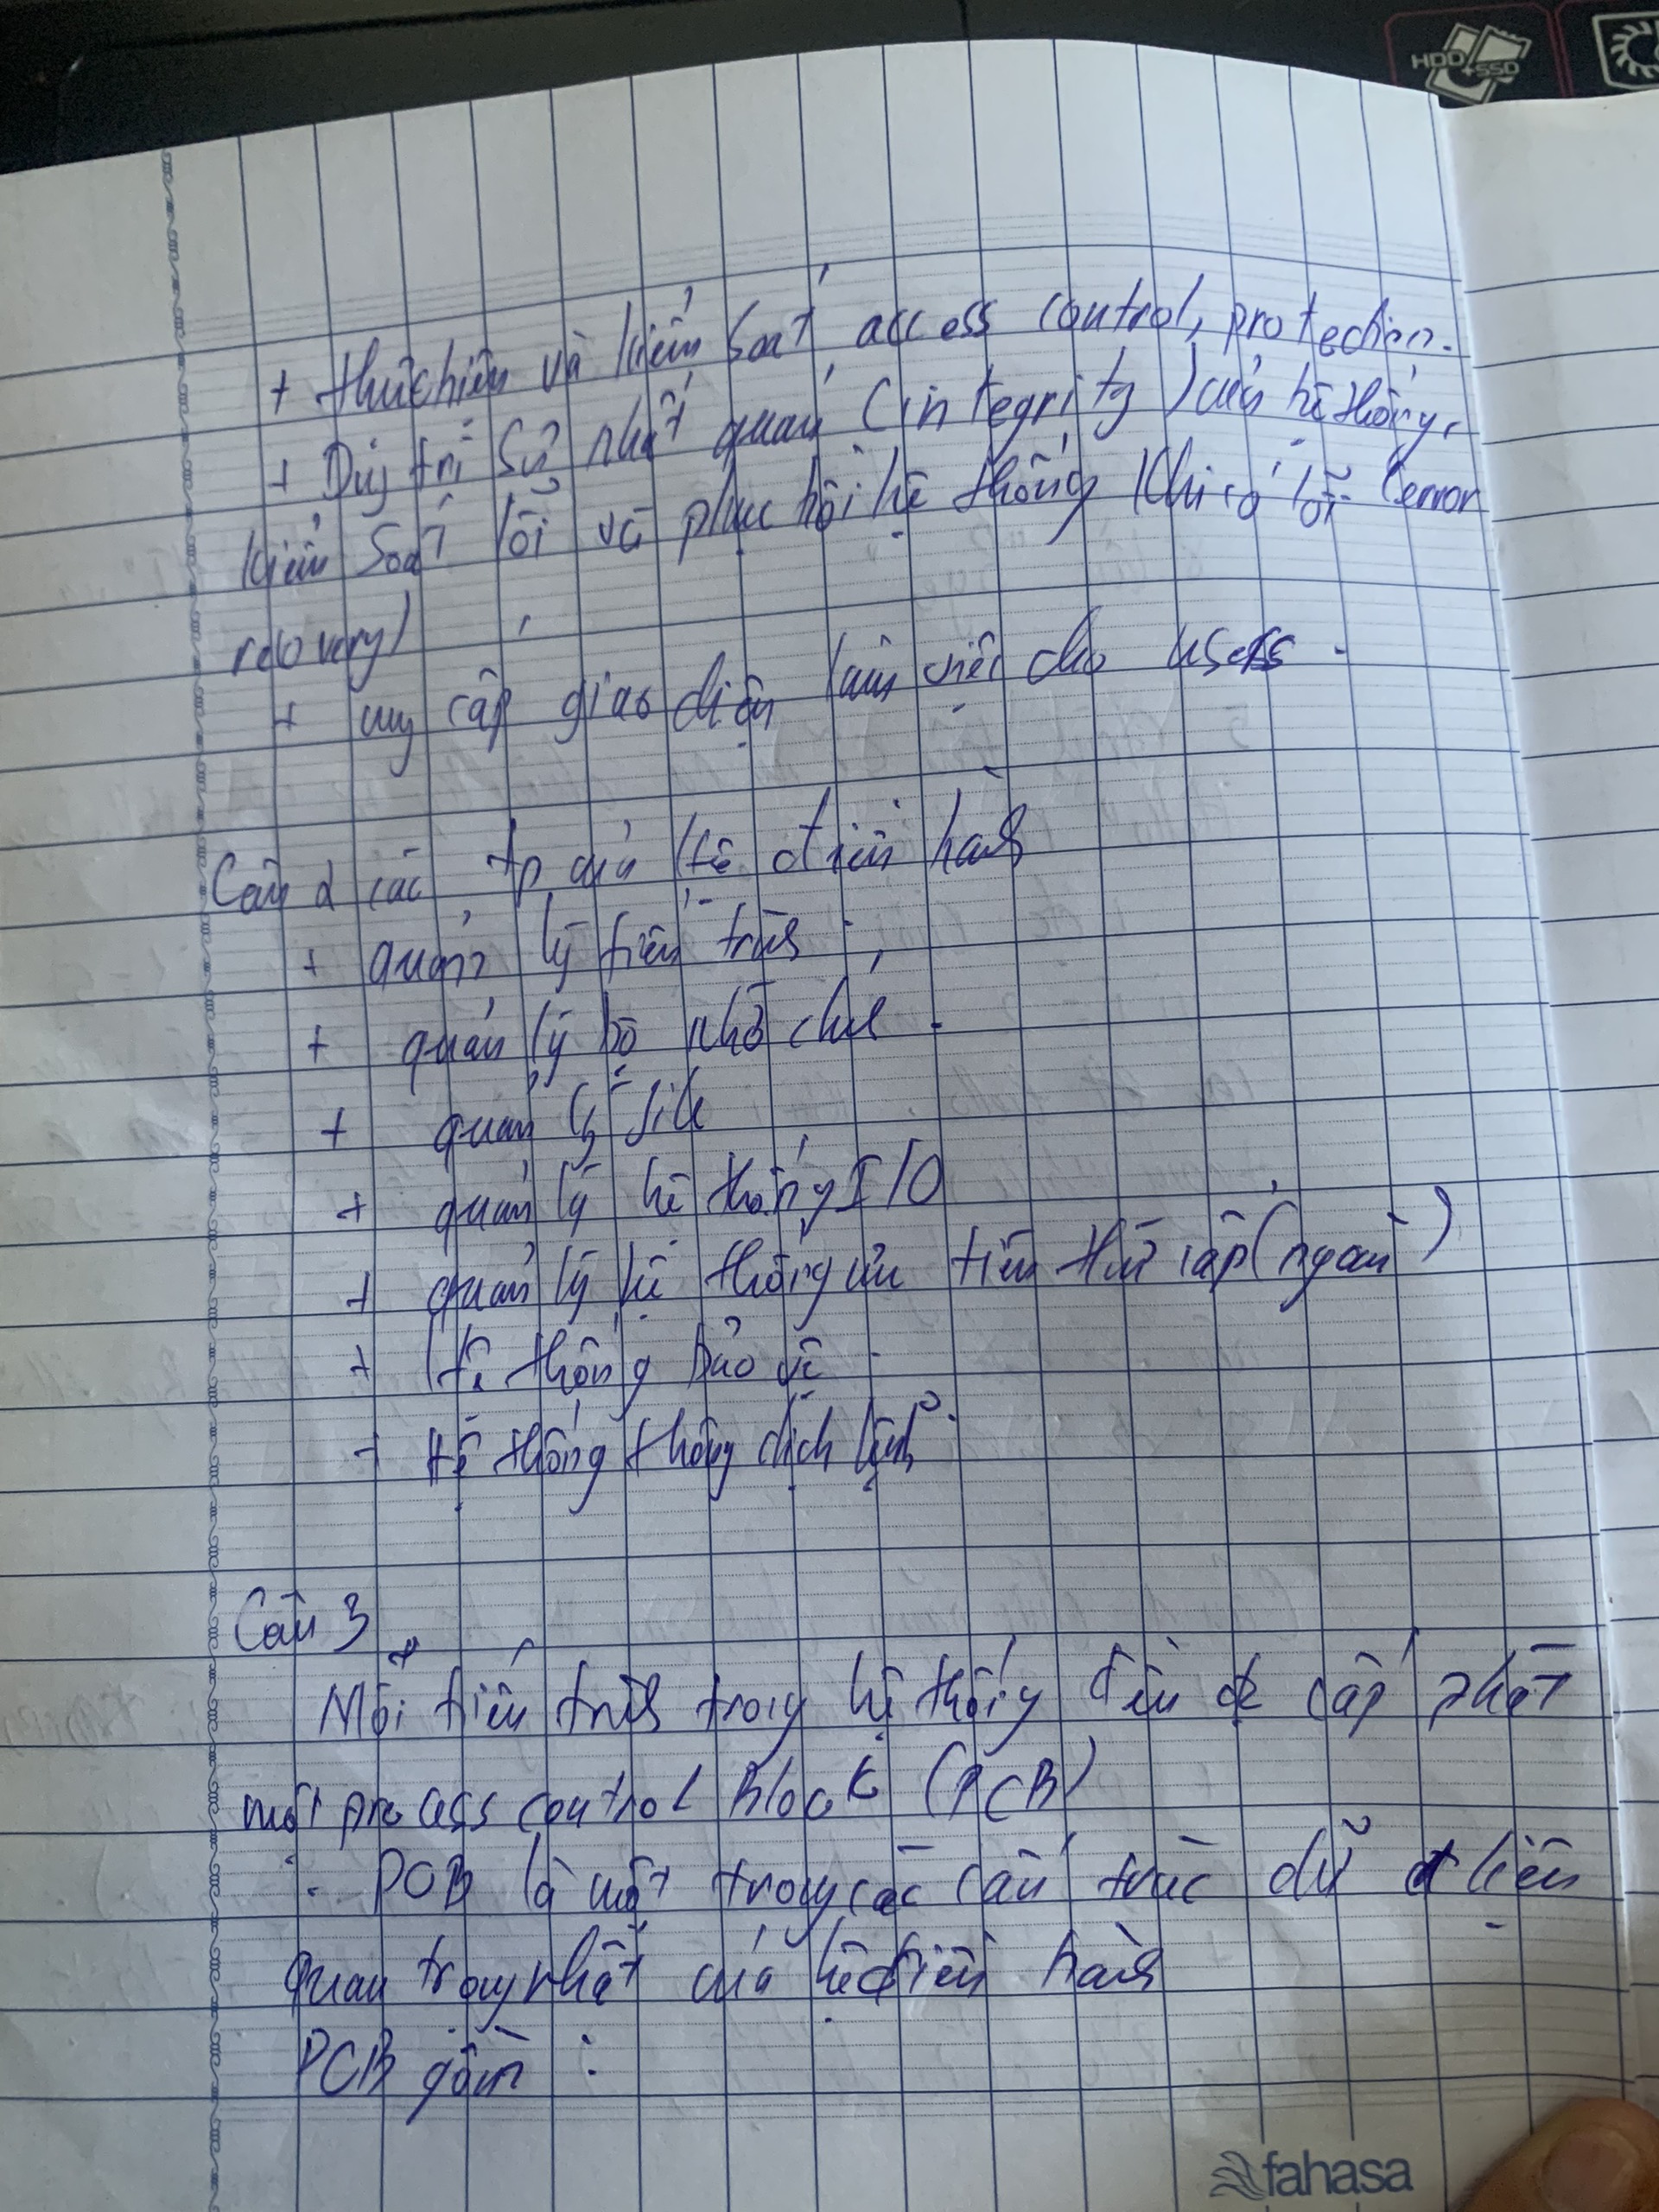 HDD+SSD
+ thực hiện và kiểm soát access control, protection.
+ Duy trì sự nhất quán (integrity) của hệ thống,
kiểm soát lỗi và phục hồi hệ thống khi có lỗi (error
recovery)
+ cung cấp giao diện làm việc cho users.
Câu 2 các tp của Hệ điều hành
+ quản lý tiến trình
+ quản lý bộ nhớ chính
+ quản lý file
+ quản lý hệ thống I/O
+ quản lý hệ thống lưu trữ thứ cấp (ngoài)
+ Hệ thống bảo vệ
+ Hệ thống thông dịch lệnh
Câu 3
Mỗi tiến trình trong hệ thống đều đc cấp phát
một process control Block (PCB)
PCB là một trong các cấu trúc dữ liệu
quan trọng nhất của hệ điều hành
PCB gồm :
fahasa